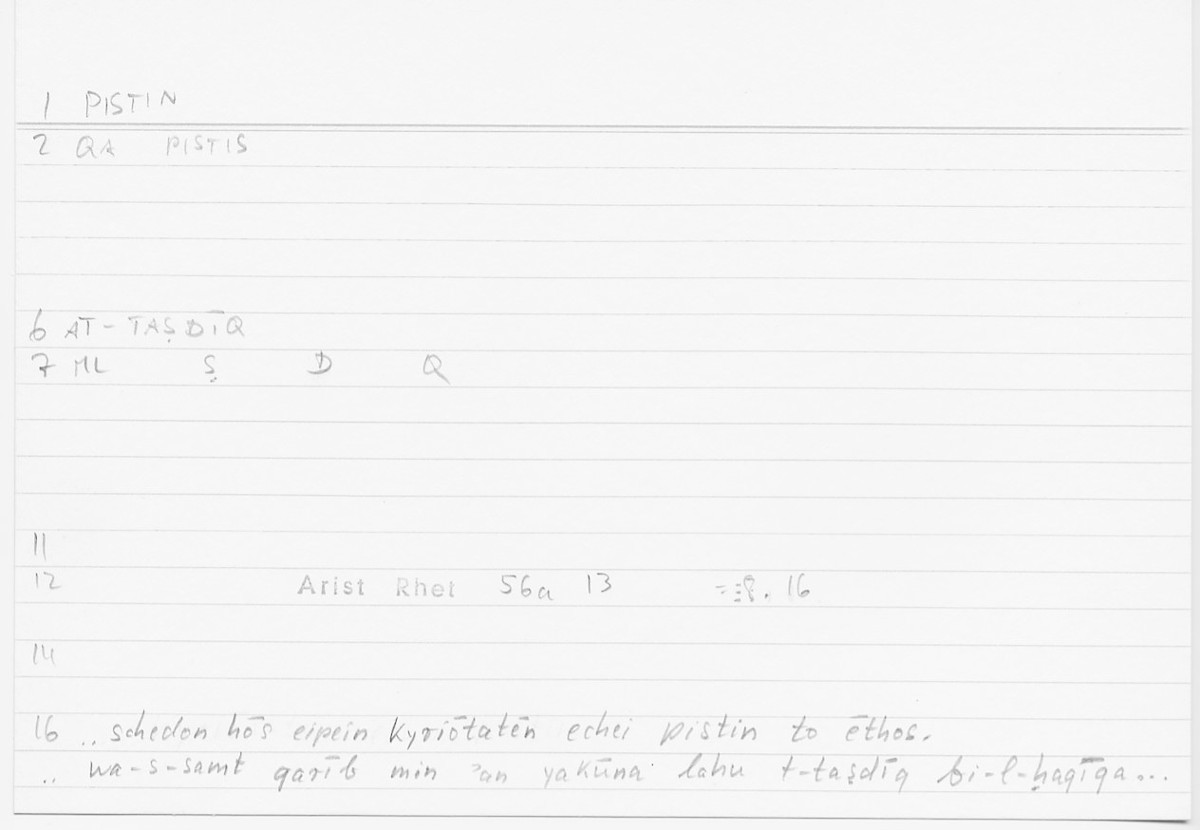 1 PISTIN
2 QA PISTIS
6 AT-TAṢDĪQ
7 ML Ṣ D Q
11
12 Arist Rhet 56a 13 16
14
16 .. schedon hōs eipein kyriōtatēn echei pistin to ēthos.
.. wa-s-samt qarīb min ʾan yakūna lahu t-taṣdīq bi-l-ḥaqīqa...